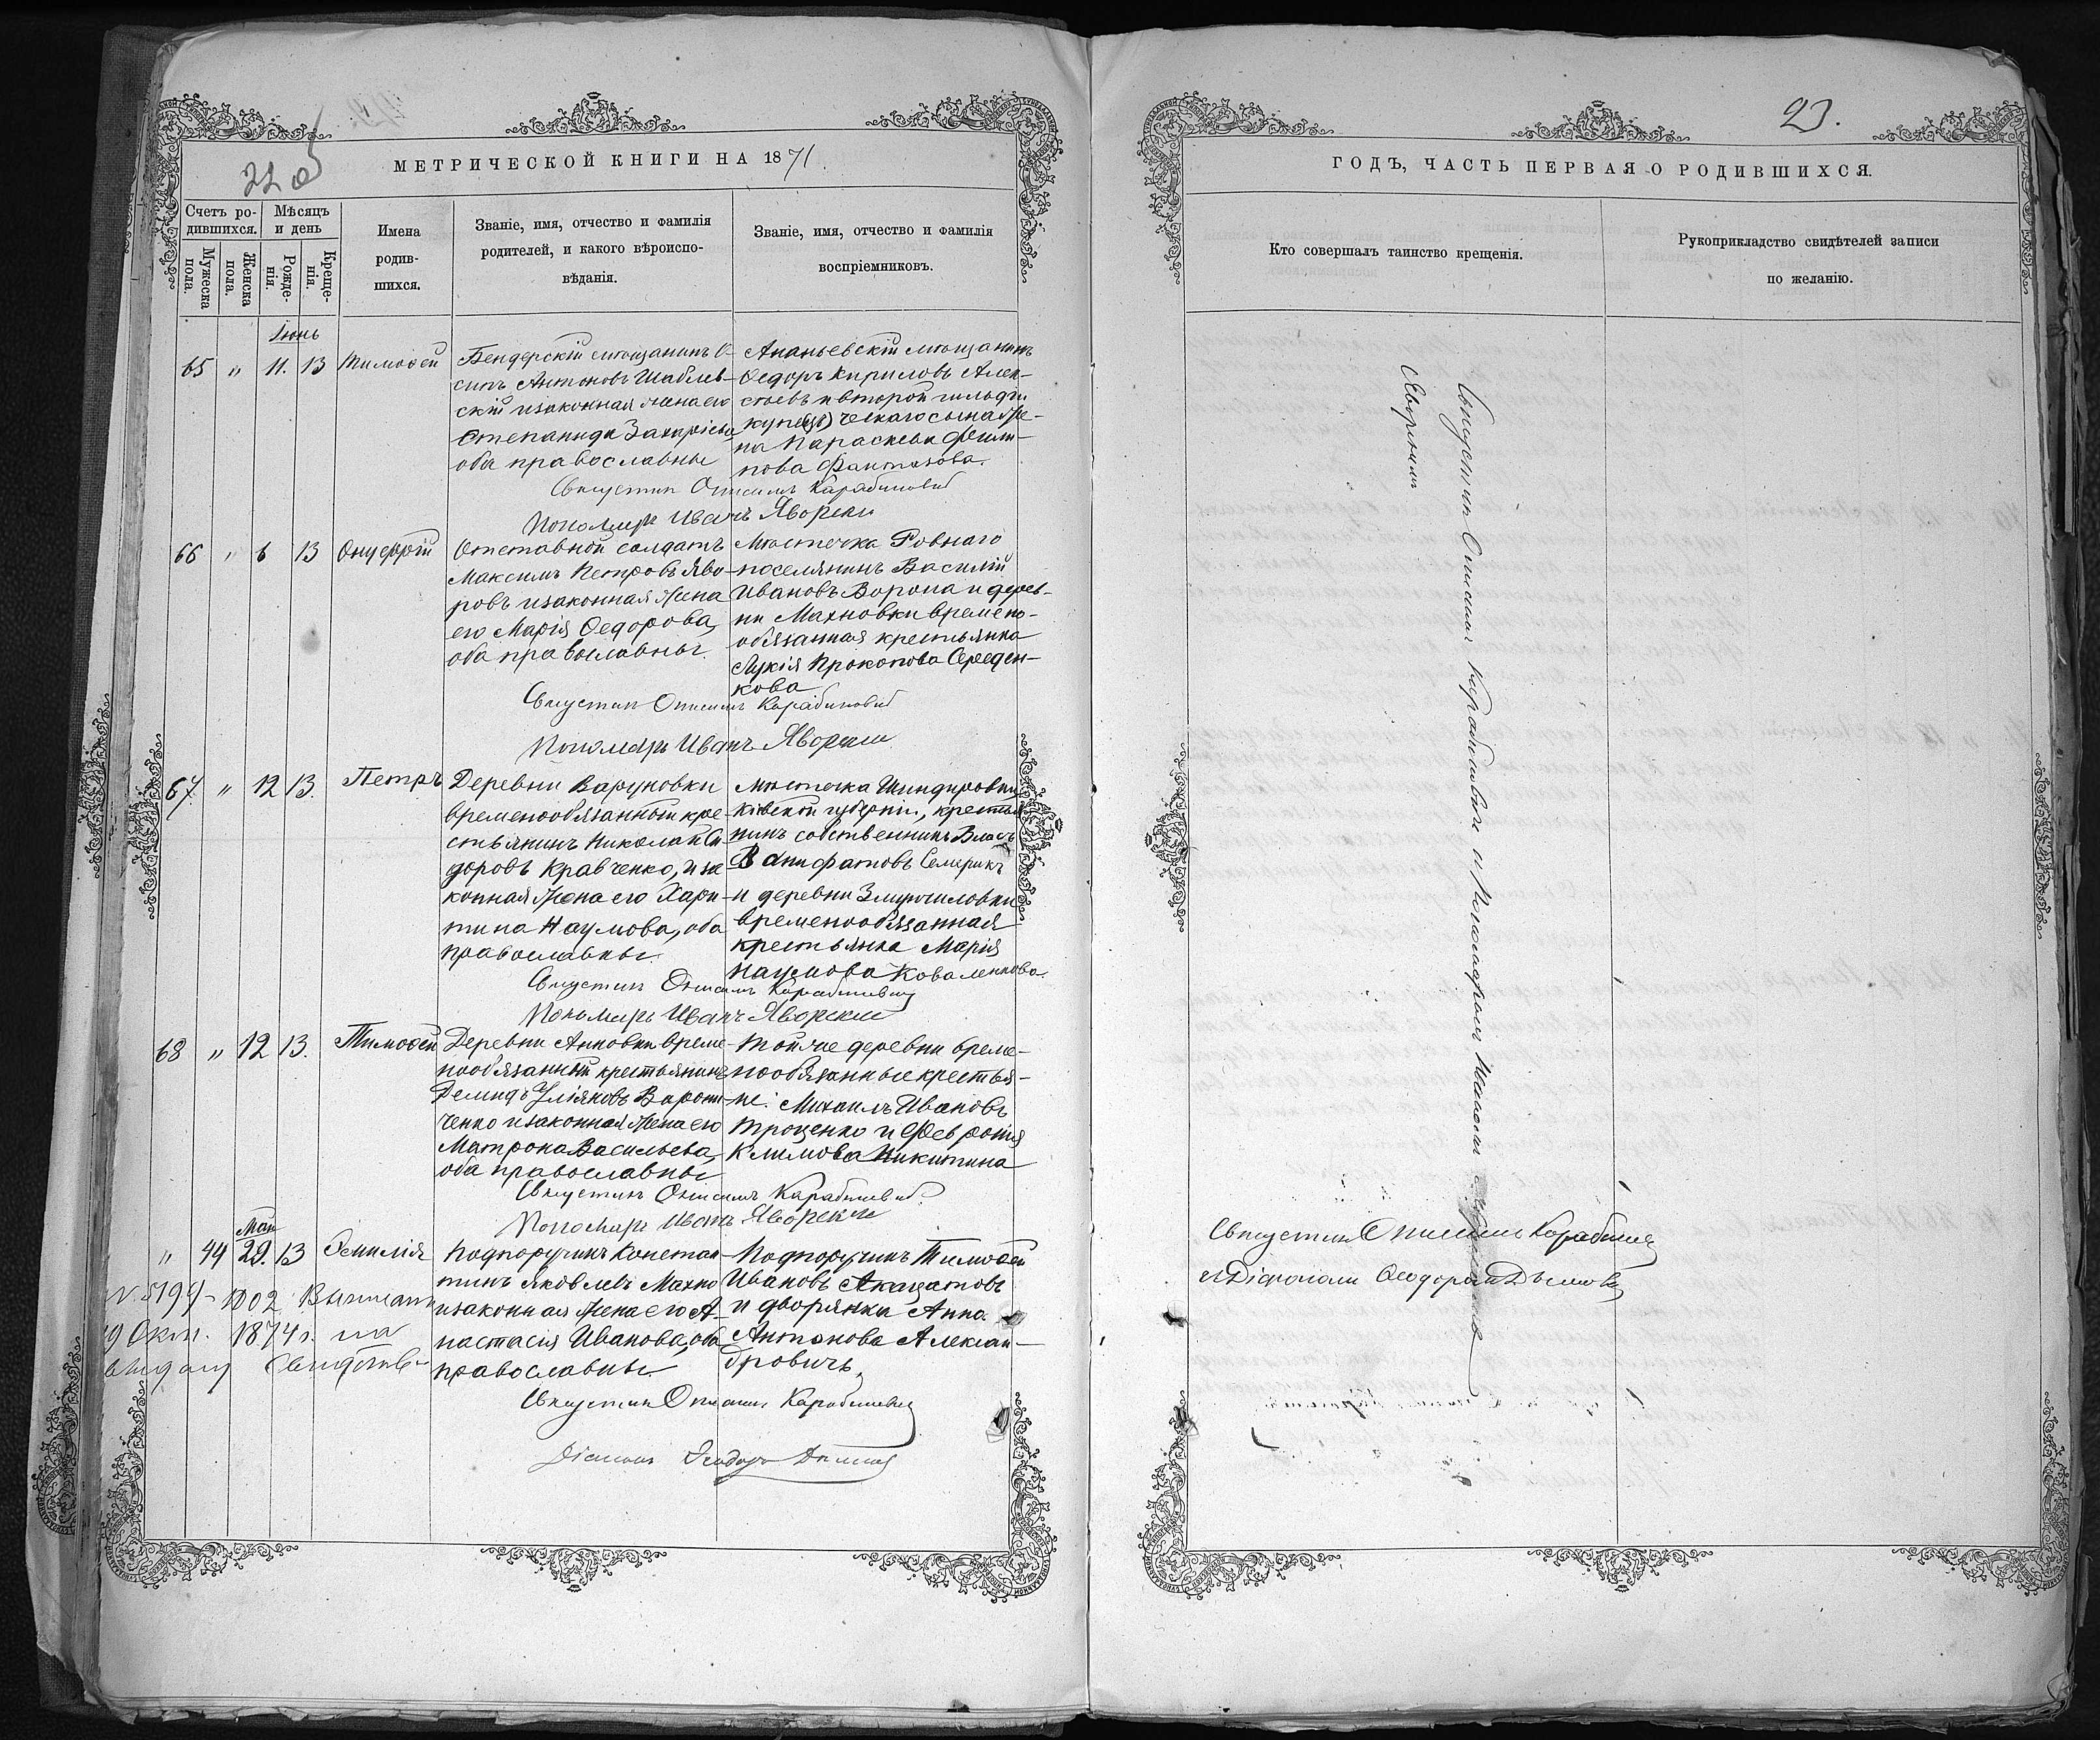 22 об
МЕТРИЧЕСКОЙ КНИГИ НА 1871.
Счетъ ро-
дившихся.
Мѣсяцъ
и день
Мужеска
пола.
Женска
пола.
Рожде-
нія.
Креще-
нія.
Имена
родив-
шихся.
Званіе, имя, отчество и фамилія
родителей, и какого вѣроиспо-
вѣданія.
Званіе, имя, отчество и фамилія
воспріемниковъ.
Іюнь
65 " 11. 13 Тимоѳей
Бендерскій мѣщанинъ О-
сипъ Антоновъ Шаблев-
скій и законная жена его
Степанида Захаріева
оба православны
Ананьевскій мѣщанинъ
Ѳедоръ Кириловъ Алек-
сѣевъ и второй гильдіи
купеческаго сына же-
на Параскева Филип-
пова Фантазова.
Священникъ Онисимъ Карабиновичъ
Пономарь Иванъ Яворскій
66 " 6 13 Онуфрій
Отставной солдатъ
Максимъ Петровъ Яво-
ровъ и законная жена
его Марія Ѳедорова,
оба православны.
Мѣстечка Ровнаго
поселянинъ Василій
Ивановъ Ворона и дерев-
ни Махновки времено-
обязанная крестьянка
Лукія Прокопова Середен-
кова
Священникъ Онисимъ Карабиновичъ
Пономарь Иванъ Яворскій
67. " 12 13. Петръ
Деревни Варуновки
временообязанный кре-
стьянинъ Николай Си-
доровъ Кравченко, и за-
конная жена его Хари-
тина Наумова, оба
православны.
Мѣстечка Шендировки
Кіевской губерніи, крестья-
нинъ собственникъ Власъ
Ванифатовъ Семерикъ
и деревни
временообязанная
крестьянка Марія
Наумова Коваленкова.
Священникъ Онисимъ Карабиновичъ
Пономарь Иванъ Яворскій
68 " 12 13. Тимоѳей
Деревни Анновки време-
нообязанный крестьянинъ
Демидъ Уліяновъ Ворот-
ченко и законная жена его
Матрона Васильева,
оба православны
Той же деревни време-
нообязанные крестья-
не: Михаилъ Ивановъ
Троценко и Февронія
Климова Никитина
Священникъ Онисимъ Карабиновичъ.
Пономарь Иванъ Яворскій
Мая
" 44 29. 13 Эмилія
Подпоручикъ Констан-
тинъ Яковлевъ Махно
и законная жена его А-
настасія Иванова, оба
православны.
Подпоручикъ Тимоѳей
Ивановъ Акацатовъ
и дворянка Анна
Антонова Алексан-
дровичъ.
N 5199 - 1002
19 Окт. 1874 г. на
Священникъ Онисимъ Карабиновичъ
Діаконъ Ѳеодоръ
23.
ГОДЪ, ЧАСТЬ ПЕРВАЯ О РОДИВШИХСЯ.
Кто совершалъ таинство крещенія.
Рукоприкладство свидѣтелей записи
по желанію.
Священникъ Онисимъ Карабиновичъ и Пономаремъ Иваномъ
Яворскимъ
Священникъ Онисимъ Карабиновичъ
и Діакономъ Ѳеодоромъ